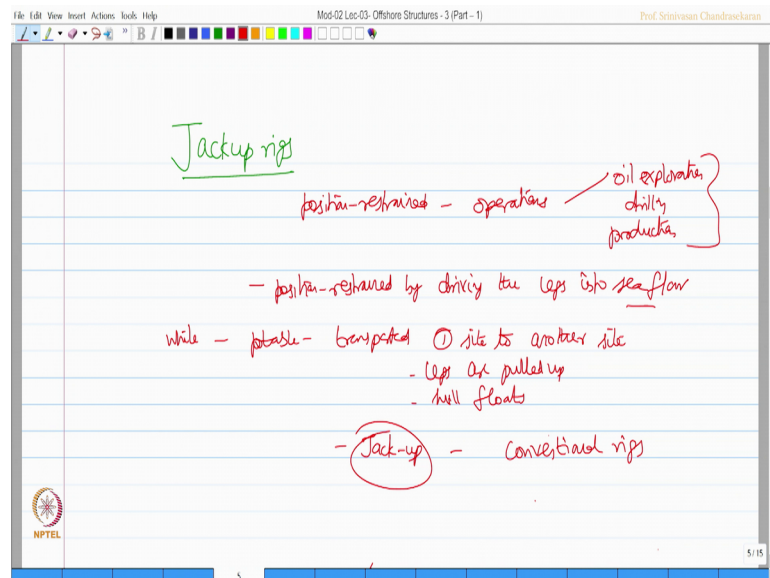 File Edit View Insert Actions Tools Help
Mod-02 Lec-03- Offshore Structures - 3 (Part – 1)
Prof. Srinivasan Chandrasekaran
» B I
Jackup rigs
position-restrained - operations
oil exploration
drilling
production
- position-restrained by driving the legs into sea floor
while - potable - transported ① site to another site
- legs are pulled up
- hull floats
- Jack-up - conventional rigs
NPTEL
5/15